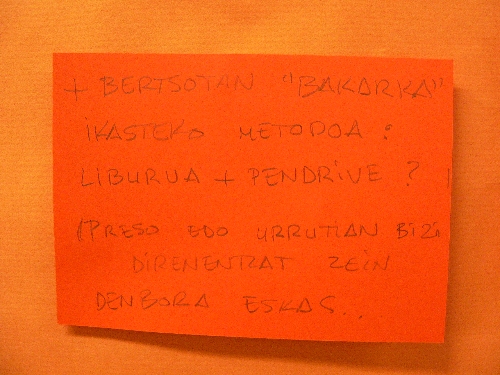 + BERTSOTAN "BAKARKA"
iKASTEKO METODOA :
LiBURUA + PENDRiVE ?
(PRESO EDO URRUTIAN BiZi
DiRENENTZAT ZEiN
DENBORA ESKAS...